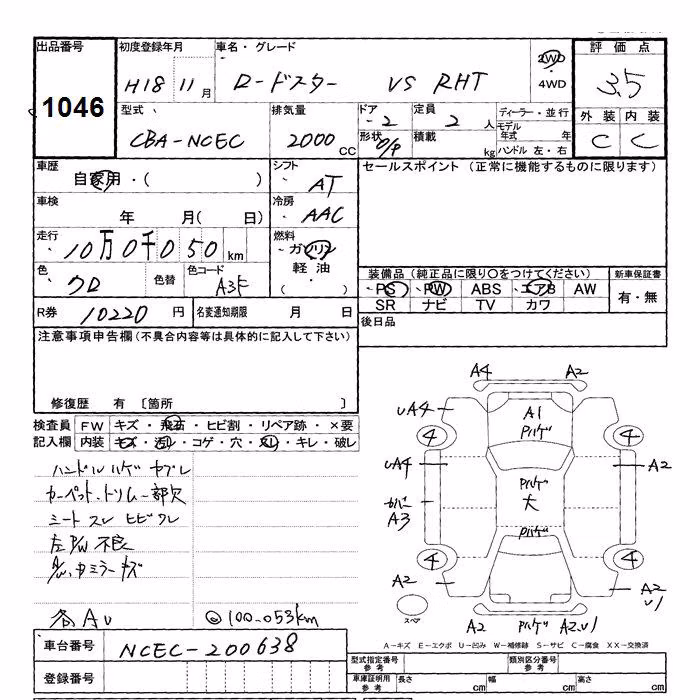 出品番号
1046
初度登録年月
H18 11月
車名・グレード
ロードスター VS RHT
2WD
・
4WD
評価点
3.5
型式
CBA-NCEC
排気量
2000CC
ドア
・2
形状
定員
2人
積載 kg
ディーラー・並行
モデル年式 年
ハンドル 左・右
外装 内装
C C
車歴
自家用・( )
シフト
AT
セールスポイント (正常に機能するものに限ります)
車検
年 月( 日)
冷房
AAC
走行
10万0千050km
燃料
ガソリン
軽油
( )
色
クロ
色替
色コード
A3F
装備品(純正品に限り○をつけてください)
・PS ・PW ABS ・エアB AW
SR ナビ TV カワ
新車保証書
有・無
R券 10220円
名変通知期限 月 日
後日品
注意事項申告欄(不具合内容等は具体的に記入して下さい)
修復歴 有 〔箇所 〕
検査員記入欄
FW キズ・飛石・ヒビ割・リペア跡・×要
内装 キズ・汚レ・コゲ・穴・スレ・キレ・破レ
ハンドルハゲ ヤブレ
カーペット・トリム一部欠
シート スレ ヒビワレ
左P/W不良
各AU
◎100.053km
A4 A2
UA4
A1
Pハゲ
4 4
UA4
A2
Pハゲ
大
カバー
A3
Pハゲ
4 4
A2
A2
U1
スペア
A2 Pハゲ A2.U1
A-キズ E-エクボ U-凹み W-補修跡 S-サビ C-腐食 XX-交換済
車台番号
NCEC-200638
登録番号
型式指定番号
参考
類別区分番号
参考
車庫証明用
参考
長さ cm
幅 cm
高さ cm